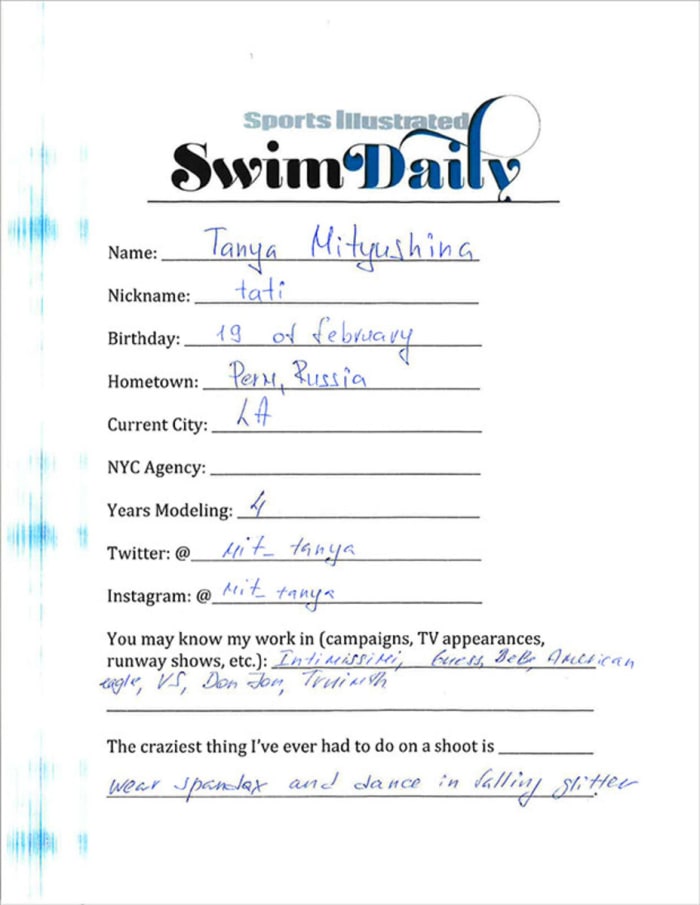 Sports Illustrated
SwimDaily
Name: Tanya Mityushina
Nickname: tati
Birthday: 19 of february
Hometown: Perm, Russia
Current City: LA
NYC Agency:
Years Modeling: 4
Twitter: @ mit_tanya
Instagram: @ mit_tanya
You may know my work in (campaigns, TV appearances,
runway shows, etc.): Intimissimi, Guess, BeBe, American
eagle, VS, Don Jon,
The craziest thing I've ever had to do on a shoot is
wear spandax and dance in falling glitter